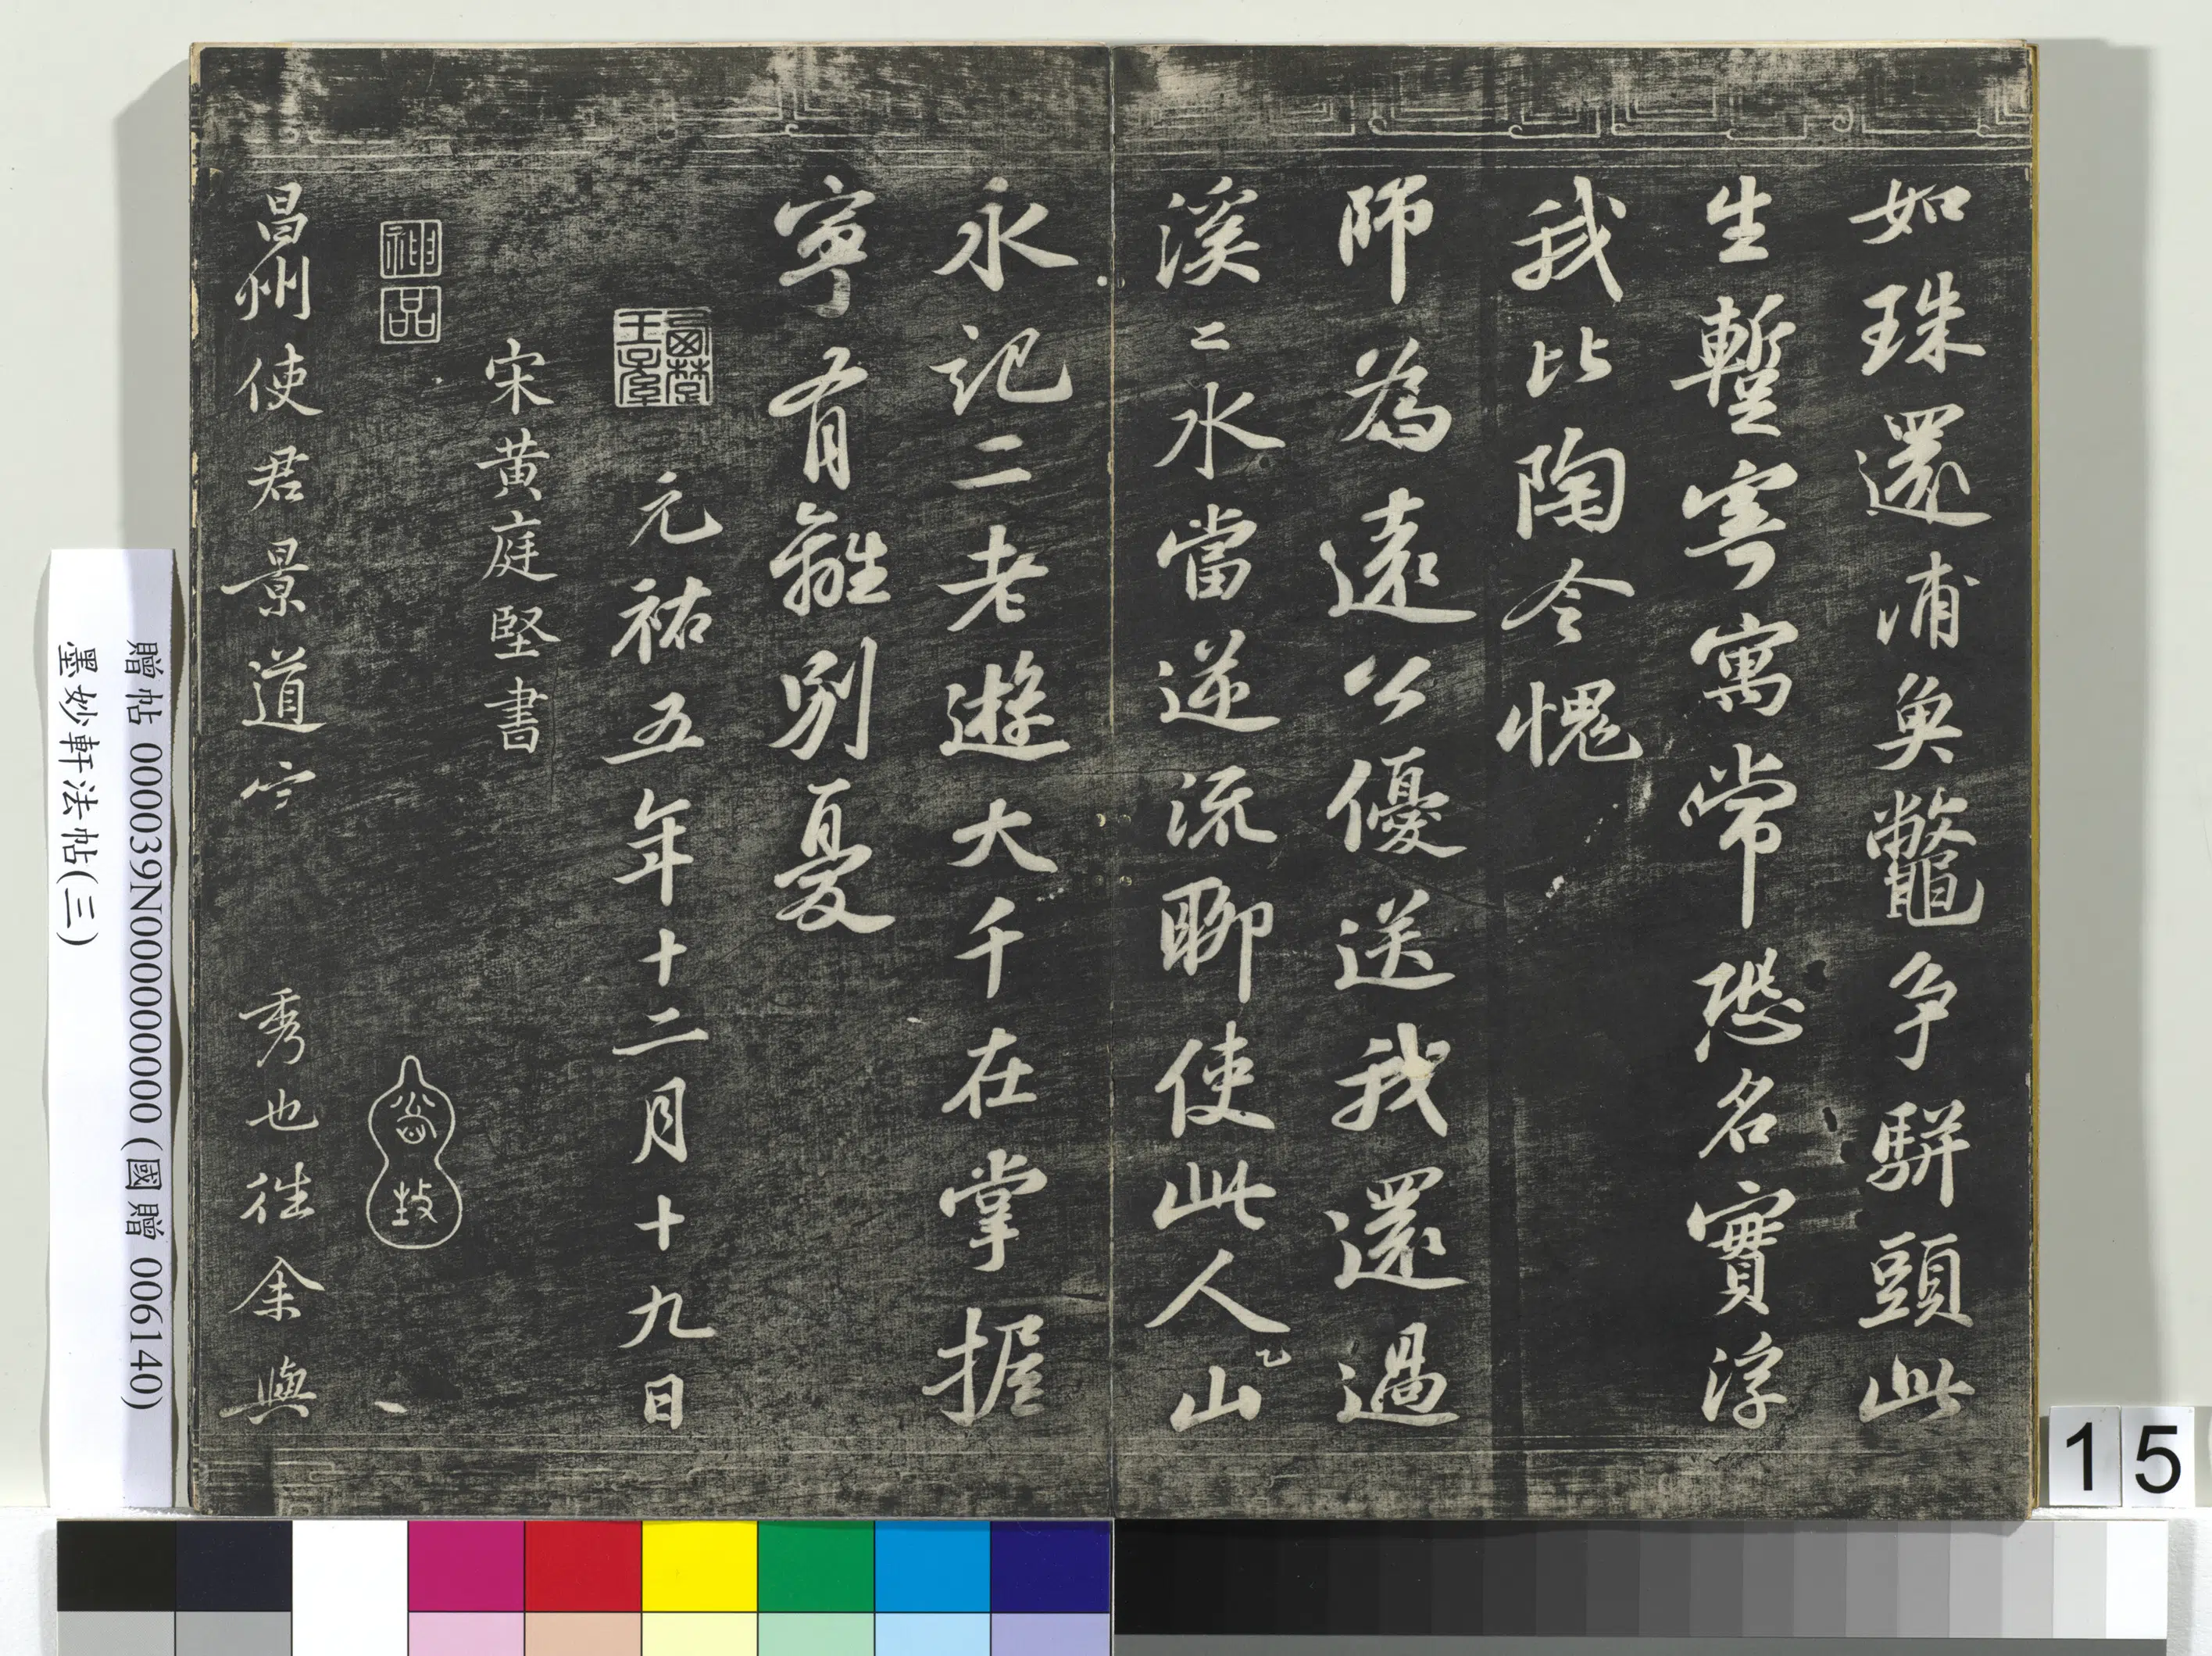 如珠還浦魚鼈爭駢頭此
生暫寄寓常恐名實浮
我比陶令愧
師為遠公優送我還過
溪溪水當逆流聊使此人山
永記二老遊大千在掌握
寧有離別憂
元祐五年十二月十九日
宋黃庭堅書
神品
昌州使君景道宗秀也往余與
贈帖 000039N000000000 (國贈 006140)
墨妙軒法帖(三)
15